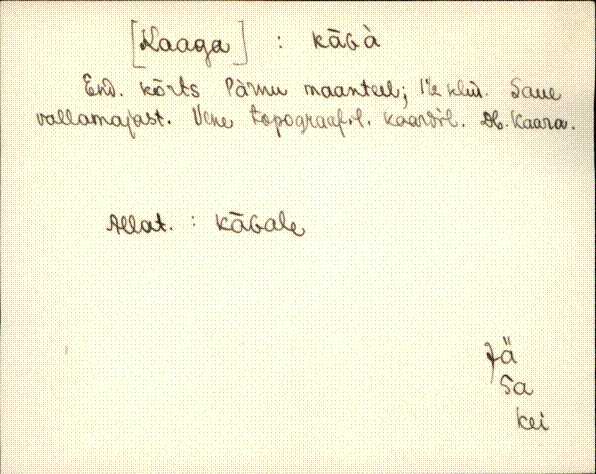 [Kaaga] : kāGà
End. kõrts Pärnu maanteel; 1½ klm. Saue
vallamajast. Vene topograafil. kaardil. Kaara.
Allat. : kāGale
Jä
Sa
Kei